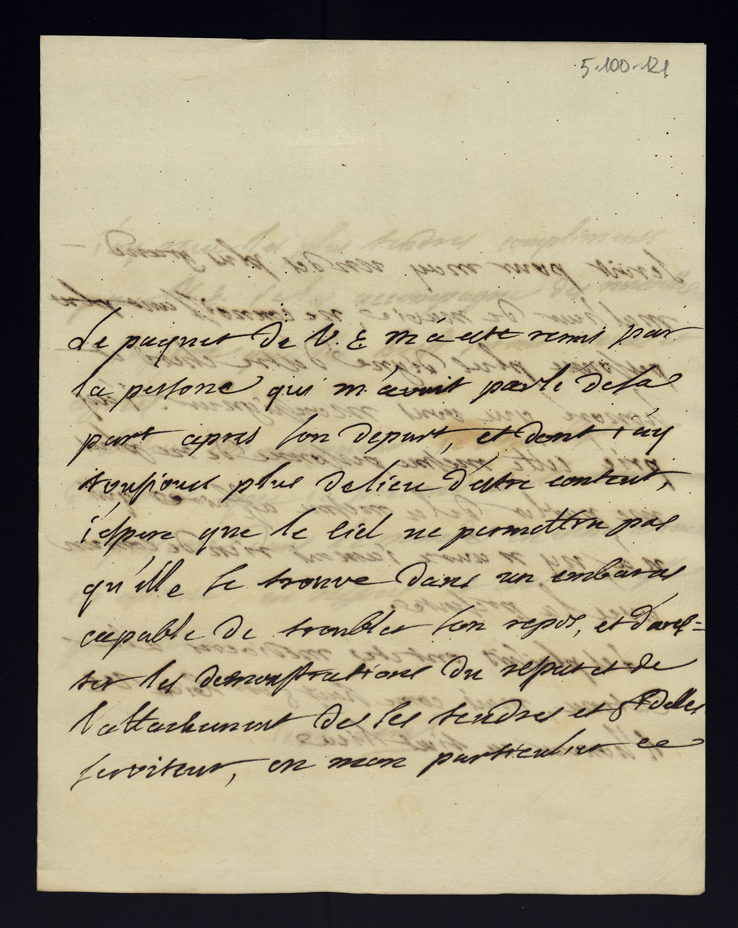 5-100-121
Le paquet de V. E m'a esté remis par
la persone qui m'avoit parlé de la
part apres son depart, et dont i'ay
tousjours plus de lieu d'estre content,
i'espere que le Ciel ne permettra pas
qu'elle se trouve dans un embaras
capable de troubler son repos, et d'ares=
ter les demonstrations du respect et de
l'attachement de ses tendres et fidelles
serviteur, en mon particulier ce